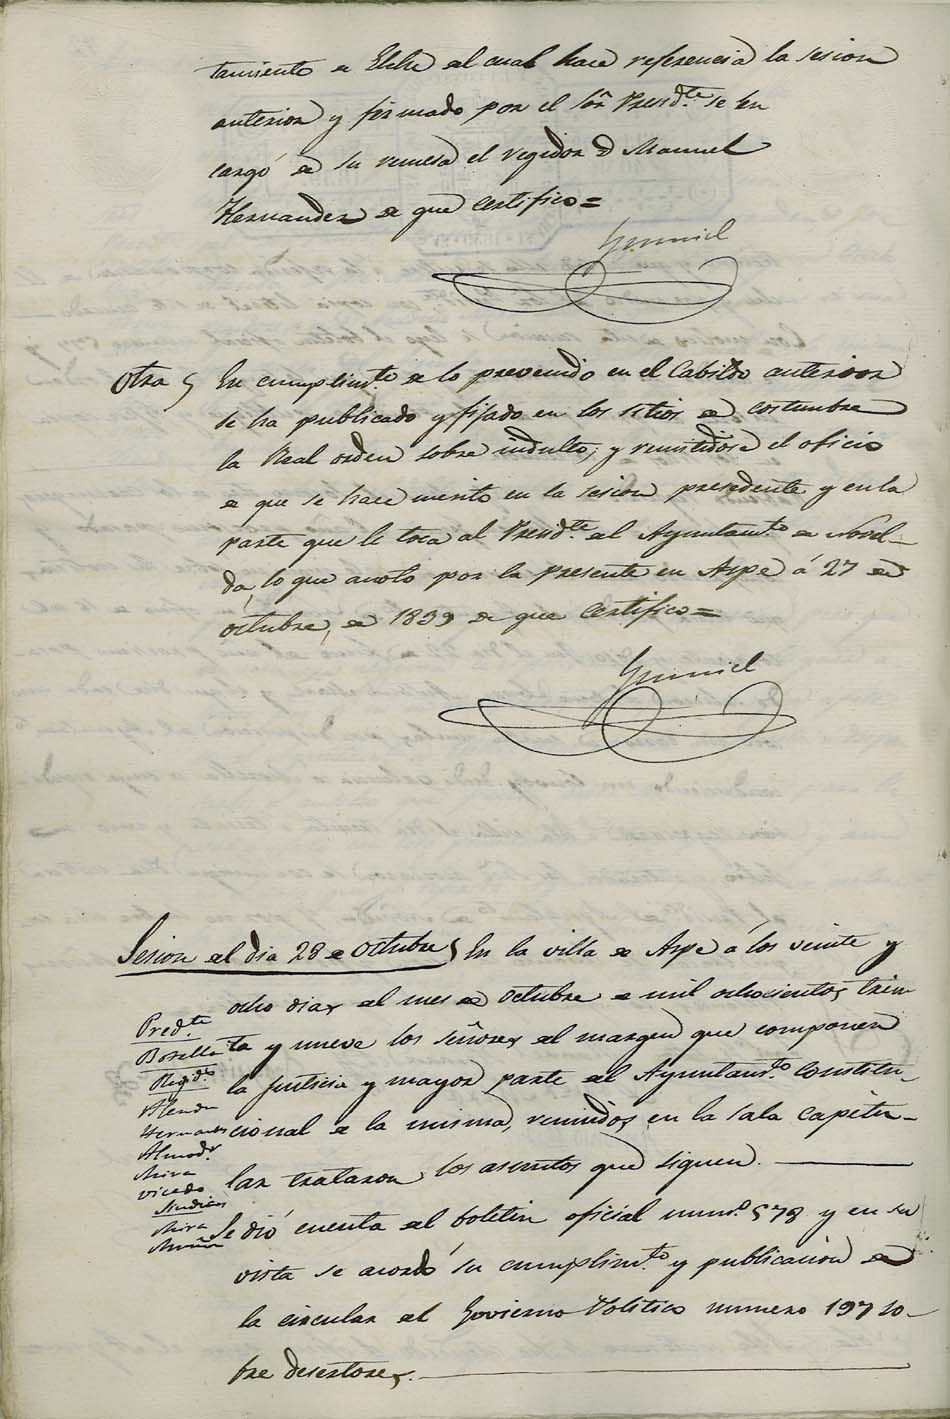 tamiento de Elche al cual hace referencia la sesion
anterior y firmado por el Sōr Presid.te se en
cargó de su remesa el regidor D Manuel
Hernandez de que certifico=
Otra
En cumplim.to de lo prevenido en el Cabildo anterior
se ha publicado y fijado en los sitios de costumbre
la Real orden sobre indulto; y remitidose el oficio
de que se hace merito en la sesion presedente y en la
parte que le toca al Presid.te del Ayuntam.to de Novel-
da, lo que anoto por la presente en Aspe á 27 de
octubre, de 1839 de que certifico=
Sesion del dia 28 de octubre
En la villa de Aspe á los veinte y
ocho dias del mes de octubre de mil ochocientos trein
ta y nueve los señores del margen que componen
la justicia y mayor parte del Ayuntam.to Constitu-
cional de la misma, reunidos en la sala capitu-
lar trataron los asuntos que siguen.
Pred.te
Botella
Regid.s
Alenda
Hernandez
Almod.r
Mira
Vicedo
Sindicos
Mira
Se dió cuenta del boletin oficial num.o 578 y en su
vista se acordó su cumplim.to y publicacion de
la circular del Govierno Politico numero 197 so-
bre desertores.